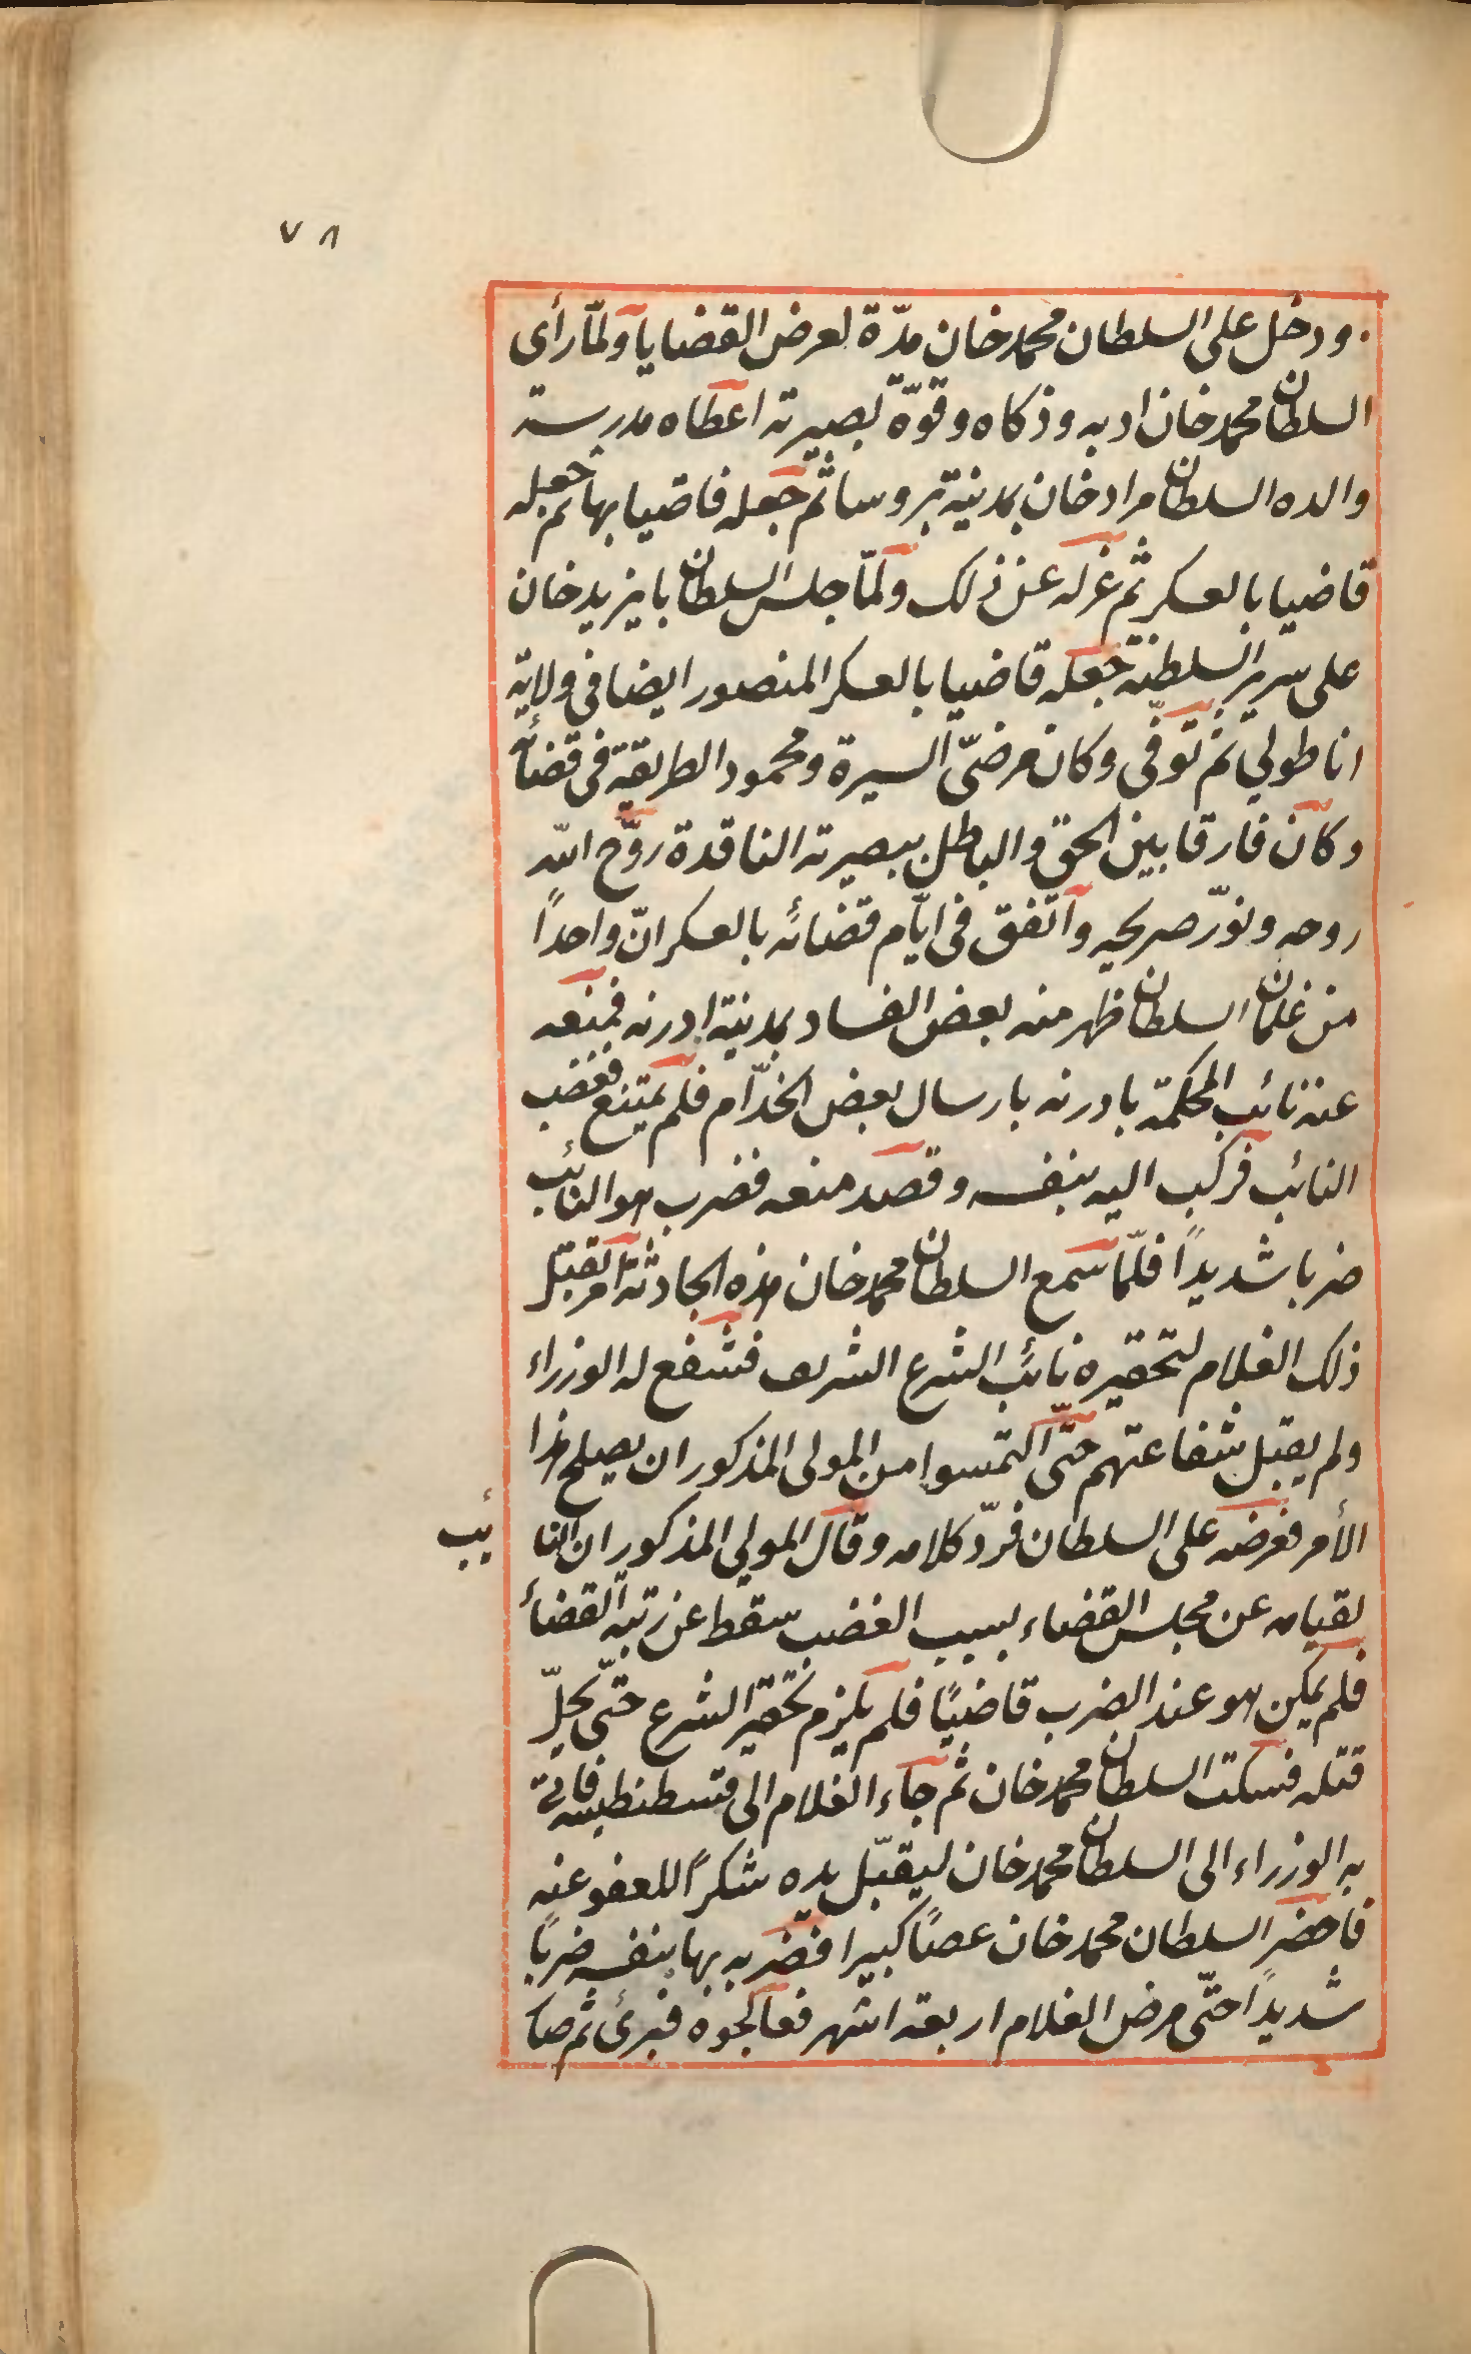 ٧٨
ودخل على السلطان محمد خان مدّة لعرض القضايا ولمّا رأى
السلطان محمد خان ادبه وذكاه وقوّة بصيرته اعطاه مدرسة
والده السلطان مراد خان بمدينة بروسا ثم جعله قاضيا بها ثم جعله
قاضيا بالعسكر ثم عزله عن ذلك ولمّا جلس السلطان بايزيد خان
على سرير السلطنة جعله قاضيا بالعسكر المنصور ايضا في ولاية
اناطولي ثم توفّى وكان مرضىّ السيرة ومحمود الطريقة في قضائه
وكان فارقا بين الحق والباطل ببصيرته الناقدة روّح اللّه
روحه ونوّر ضريحه واتفق في ايّام قضائه بالعسكر انّ واحدًا
من غلمان السلطان ظهر منه بعض الفساد بمدينة ادرنه فمنعه
عنه نائب المحكمة بادرنه بارسال بعض الخدّام فلم يمتنع فغضب
النائب فركب اليه بنفسه وقصد منعه فضرب هو النائب
ضربا شديدًا فلمّا سمع السلطان محمد خان هذه الحادثة امر بقتل
ذلك الغلام لتحقيره نائب الشرع الشريف فشفع له الوزراء
ولم يقبل شفاعتهم حتّى التمسوا من المولى المذكور ان يصلح هذا
الأمر فعرضه على السلطان فردّ كلامه وقال المولى المذكور ان النا ئب
لقيامه عن مجلس القضاء بسبب الغضب سقط عن رتبة القضاء
فلم يكن هو عند الضرب قاضيًا فلم يلزم تحقير الشرع حتّى يحلّ
قتله فسكت السلطان محمد خان ثم جاء الغلام الى قسطنطينيه فاتى
به الوزراء الى السلطان محمد خان ليقبّل يده شكرًا للعفو عنه
فاحضر السلطان محمد خان عصًا كبيرا فضربه بها بنفسه ضربًا
شديدًا حتّى مرض الغلام اربعة اشهر فعالجوه فبرئ ثم صا